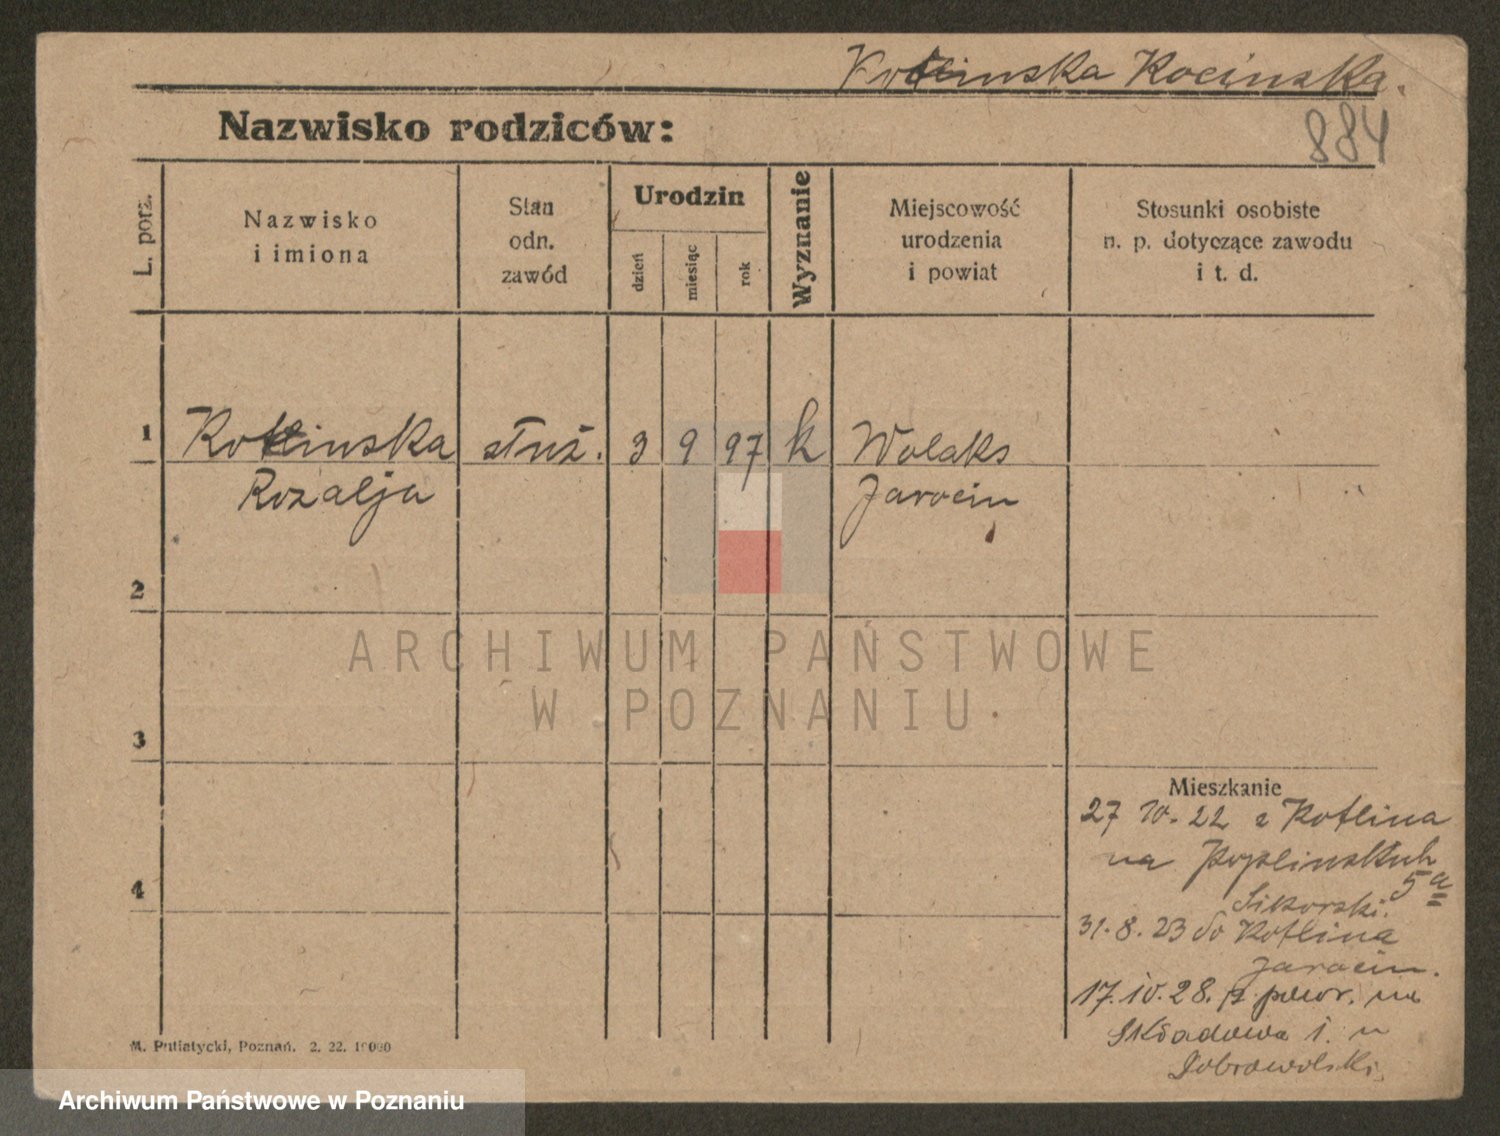 Kotlinska Kocinska.
884
Nazwisko rodziców:
L. porz.
Nazwisko
i imiona
Stan
odn.
zawód
Urodzin
dzień
miesiąc
rok
Wyznanie
Miejscowość
urodzenia
i powiat
Stosunki osobiste
n. p. dotyczące zawodu
i t. d.
1
Kotlinska służ. 3 9 97 k Wolaks
Rozalja Jarocin
2
ARCHIWUM PAŃSTWOWE
W POZNANIU
3
Mieszkanie
27 10. 22 z Kotlina
na
5a
4
Sikorski.
31. 8. 23 do Kotlina
Jarocin.
17. 10. 28. na
Składowa 1. u
Dobrowolski
M. Putiatycki, Poznań. 2. 22. 10000
Archiwum Państwowe w Poznaniu